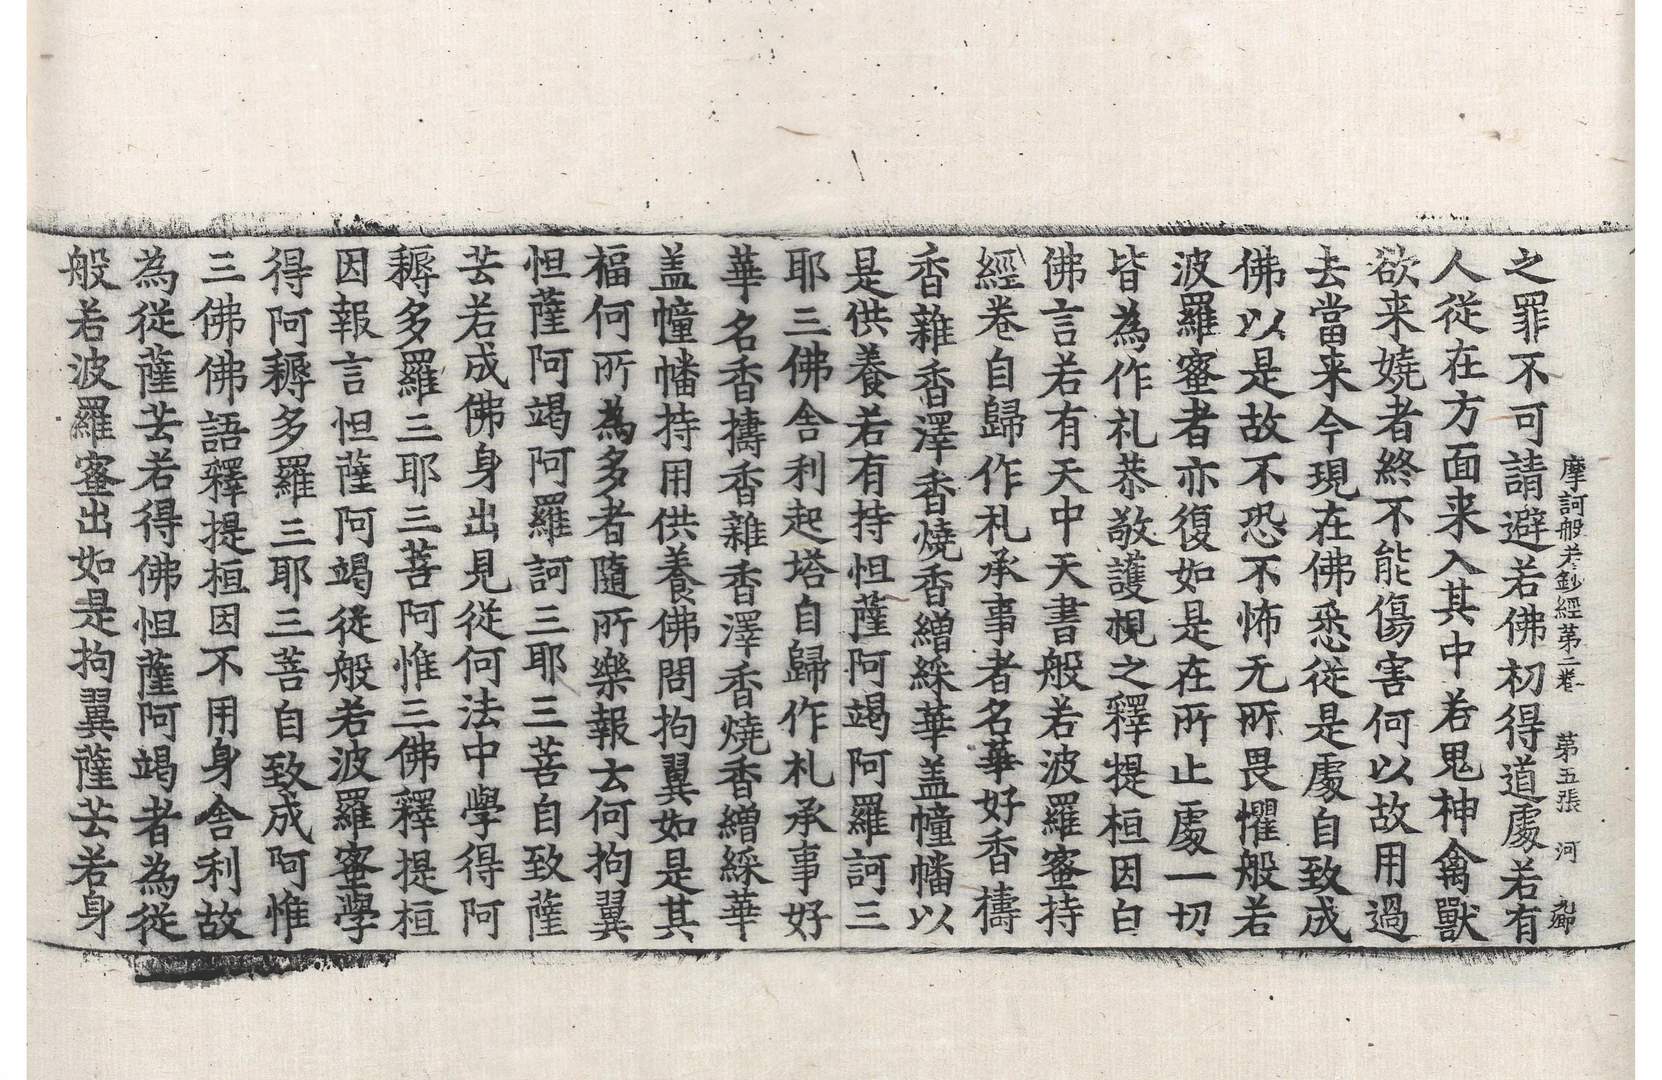 摩訶般若鈔經第二卷 第五張 河
之罪不可請避若佛初得道處若有
人從在方面来入其中若鬼神禽獸
欲来嬈者終不能傷害何以故用過
去當来今現在佛悉從是處自致成
佛以是故不恐不怖无所畏懼般若
波羅蜜者亦復如是在所止處一切
皆為作礼恭敬護視之釋提桓因白
佛言若有天中天書般若波羅蜜持
經卷自歸作礼承事者名華好香擣
香雜香澤香燒香繒綵華盖幢幡以
是供養若有持怛薩阿竭阿羅訶三
耶三佛舍利起塔自歸作礼承事好
華名香擣香雜香澤香燒香繒綵華
盖幢幡持用供養佛問拘翼如是其
福何所為多者隨所樂報去何拘翼
怛薩阿竭阿羅訶三耶三菩自致薩
芸若成佛身出見從何法中學得阿
耨多羅三耶三菩阿惟三佛釋提桓
因報言怛薩阿竭從般若波羅蜜學
得阿耨多羅三耶三菩自致成阿惟
三佛佛語釋提桓因不用身舍利故
為從薩芸若得佛怛薩阿竭者為從
般若波羅蜜出如是拘翼薩芸若身